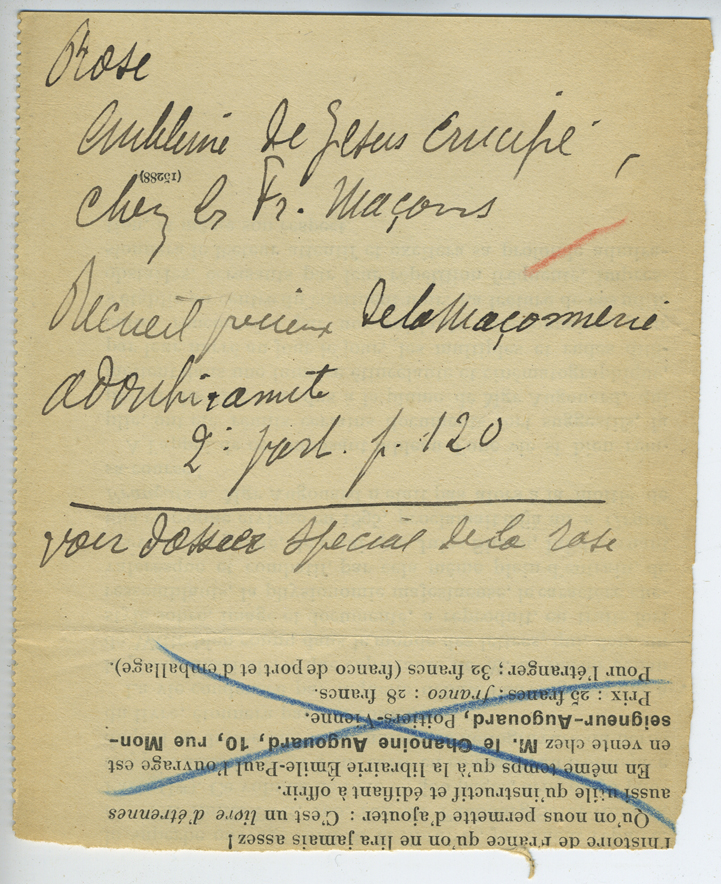 Rose
Emblème de Jesus Crucifié,
(15288)
chez les Fr. Maçons
Recueil précieux de la Maçonnerie
adonhiramite
2e part. p. 120
voir dossier special de la rose
l'histoire de France qu'on ne lira jamais assez!
Qu'on nous permette d'ajouter : C'est un livre d'étrennes
aussi utile qu'instructif et édifiant à offrir.
En même temps qu'à la librairie Émile-Paul l'ouvrage est
en vente chez M. le Chanoine Augouard, 10, rue Mon-
seigneur-Augouard, Poitiers-Vienne.
Prix : 25 francs; franco : 28 francs.
Pour l'étranger; 32 francs (franco de port et d'emballage).